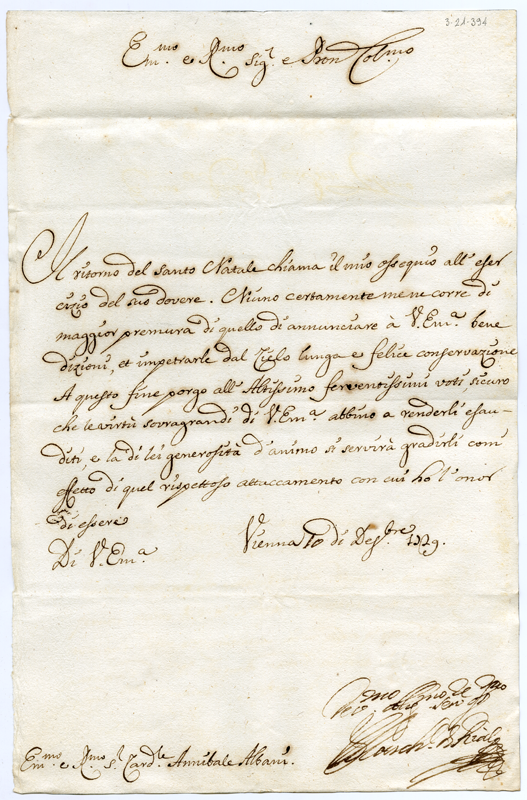 3-21-394
Em.mo e R.mo Sig.r e Pron Col.mo
Il ritorno del santo Natale chiama il mio ossequio all' eser
cizio del suo dovere. Niuno certamente mene corre di
maggior premura di quello di annunciare à V. Em.a bene
dizioni, et impetrarle dal Cielo lunga e felice conservazione
A questo fine porgo all' Altissimo ferventissimi voti sicuro
che le virtù sovragrandi di V. Em.a abbino a renderli esau-
diti, e la di lei generosità d'animo si servirà gradirli com'
effetto di quel rispettoso attaccamento con cui ho l'onor
di essere
Di V. Em.a
Vienna 10 di Desbre 1729.
Em.mo e R.mo S.r Card.le Annibale Albani.